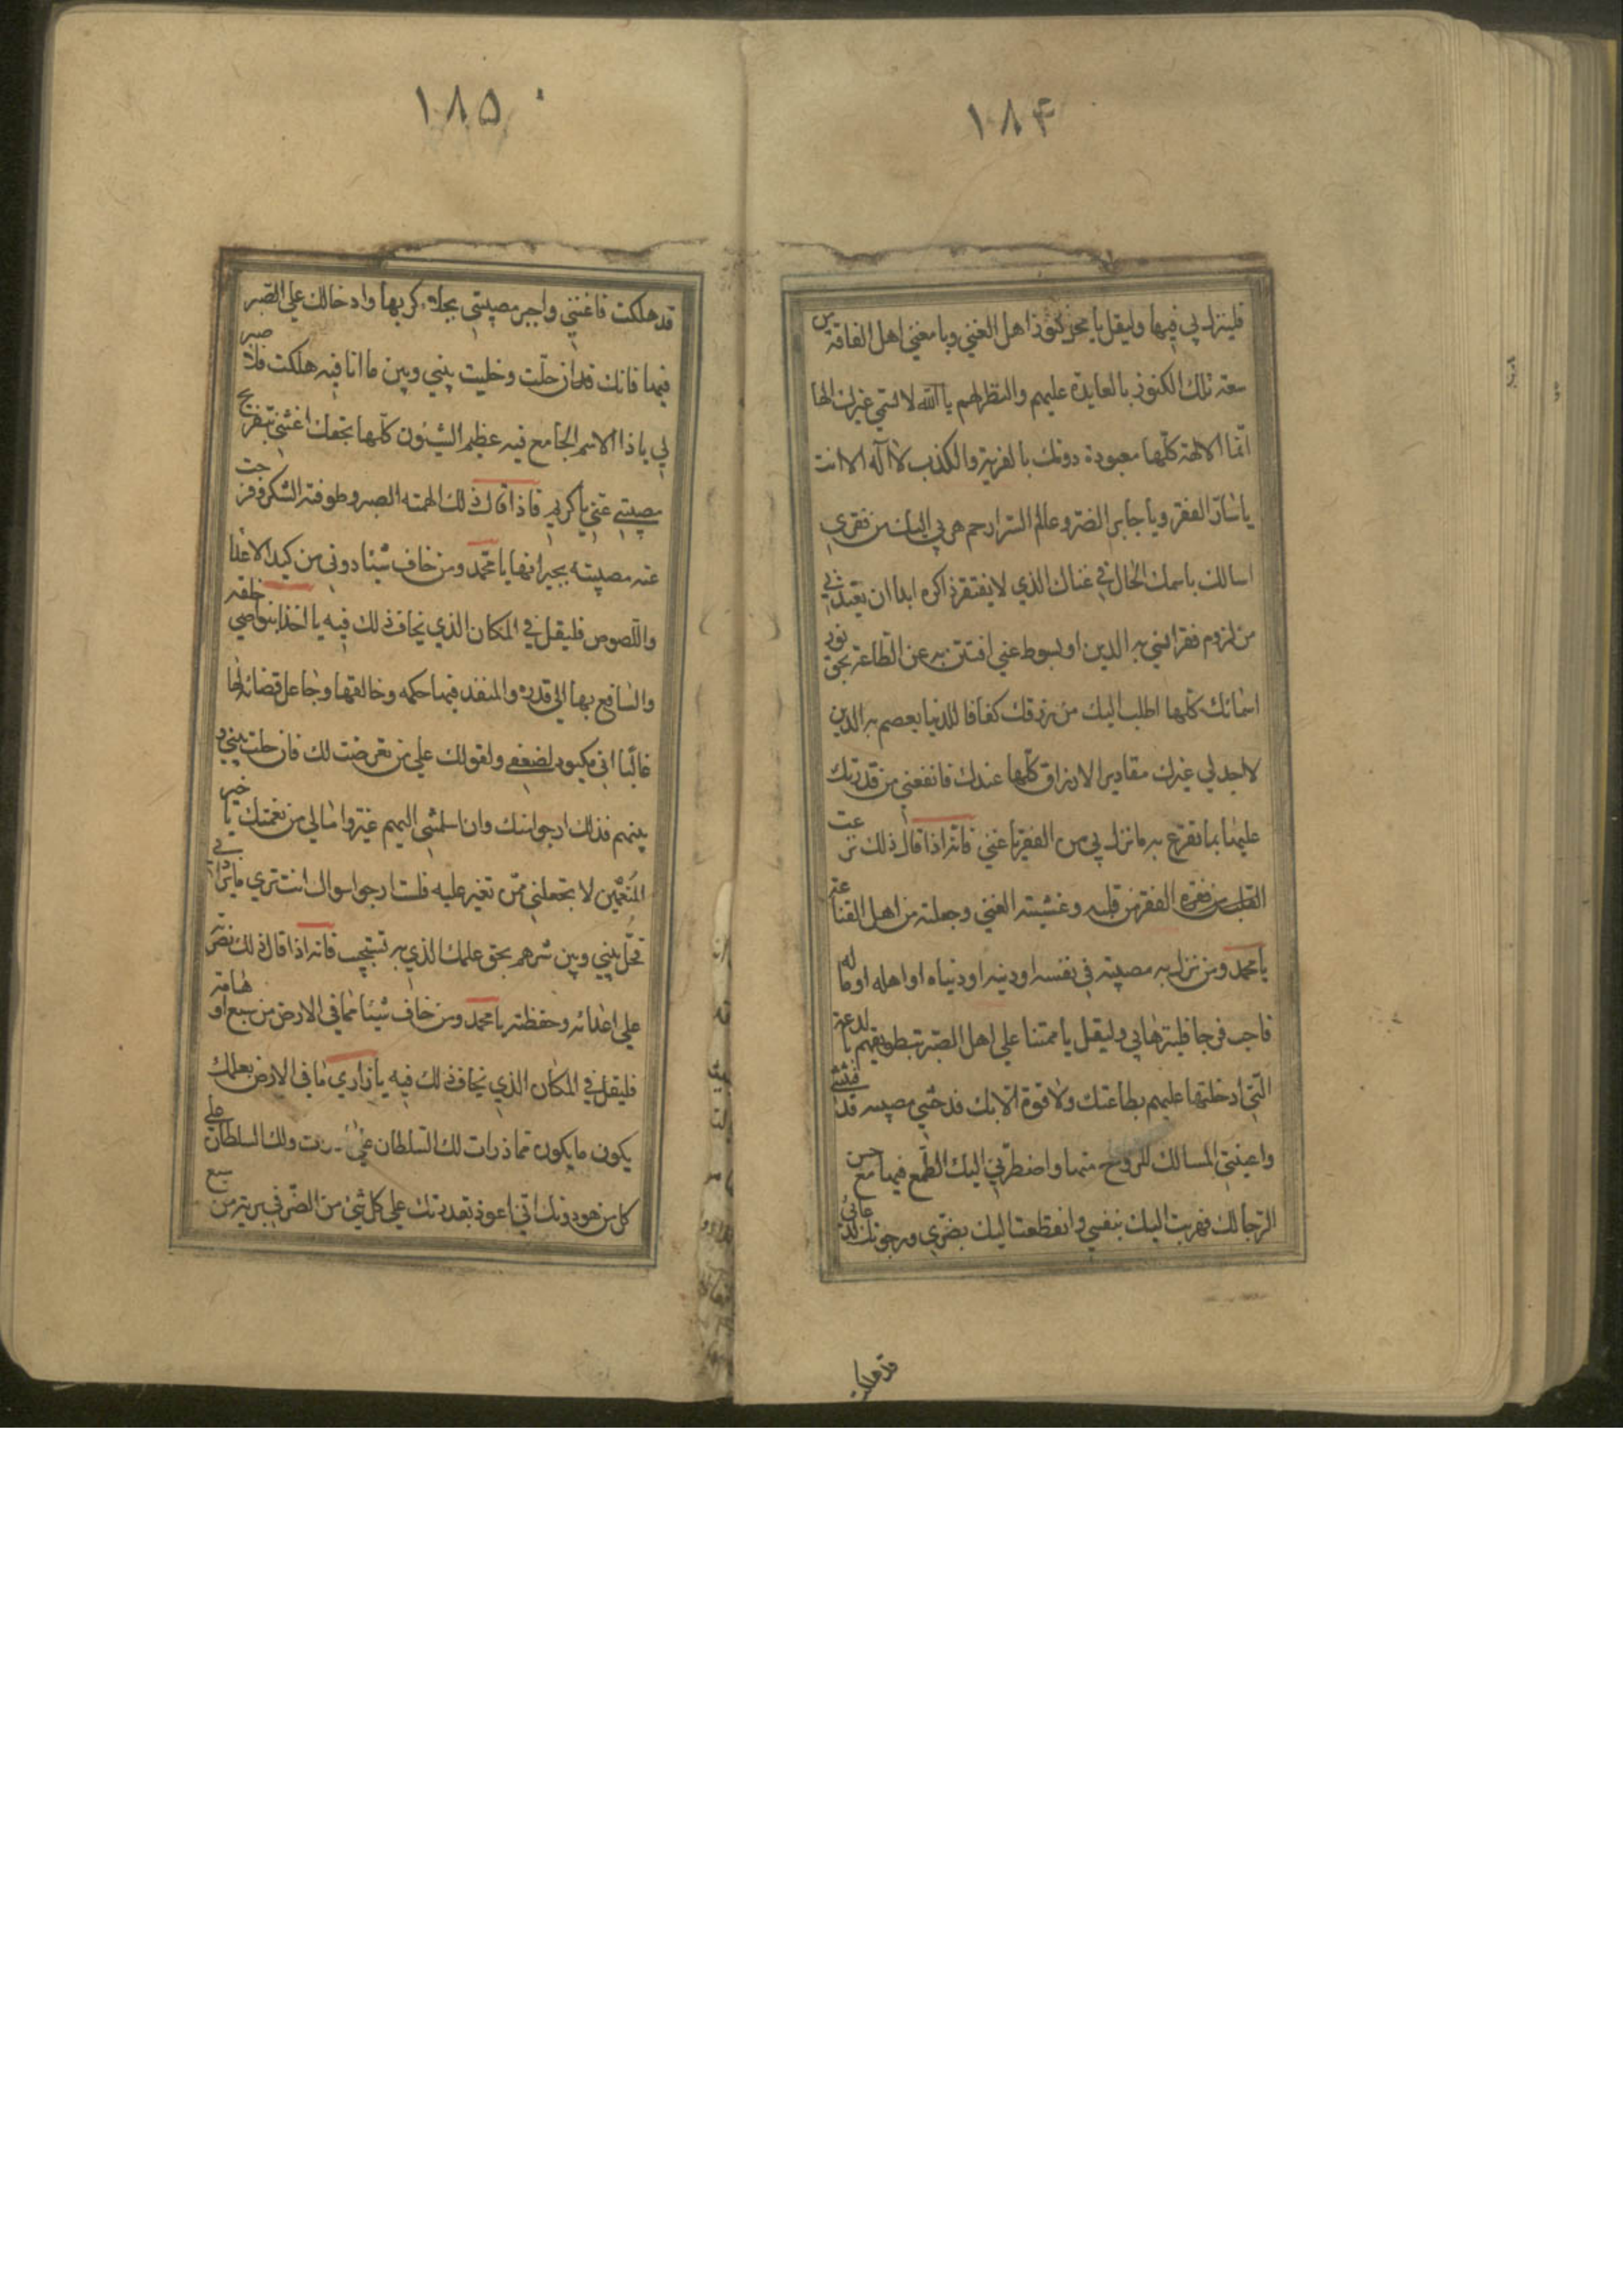 ١٨۴
فلينزل بي فيها وليقل يا محل كنوز اهل الغني ويا مغني اهل الفاقة من
سعة تلك الكنوز بالعايدة عليهم والنظر لهم يا الله لا يسمي غيرك الها
انما الالهة كلها معبودة دونك بالفرية والكذب لا اله الا انت
يا ساد الفقر ويا جابر الضر وعالم السر ارحم هربي اليك من فقري
اسالك باسمك الحال في غناك الذي لا يفتقر ذاكره ابدا ان تعيذني
من لزوم فقر انسي به الدين او بسوط غني افتتن به عن الطاعة بحق نور
اسمائك كلها اطلب اليك من رزقك كفافا للدنيا يعصم به الدين
لا اجد لي غيرك مقادير الارزاق كلها عندك فانفعني من قدرتك
عليها بما تنزع به ما نزل بي من الفقر يا غني فانه اذا قال ذلك نزعت
الفقر من قلبه وغشيته الغني وجعلته من اهل القناعة
يا محمد ومن نزل به مصيبة في نفسه او دينه او دنياه او اهله او ماله
فاحب فرجا فلينزلها بي وليقل يا ممتنا علي اهل الصبر بتطويقهم بالدعة
التي ادخلتها عليهم بطاعتك ولا قوة الا بك فدحتني مصيبة قد فتنتني
واعيتني المسالك للروح منها واضطرني اليك الطمع فيها مع حسن
الرجا لك فهربت اليك بنفسي وانقطعت اليك بضري ورجوتك لدعائي
قد هلكت
١٨٥
قد هلكت فاغثني واجبر مصيبتي بجلاء كربها وادخالك علي الصبر
فيها فانك ان حلت وخليت بيني وبين ما انا فيه هلكت فلا صبر
لي يا ذا الاسم الجامع فيه عظيم الشئون كلها بحقك اغثني بتفريج
مصيبتي عني يا كريم فاذا قال ذلك الهمته الصبر وطوقته الشكر وفرجت
عنه مصيبته بجبرانها يا محمد ومن خاف شيئا دوني من كيد الاعدا
واللصوص فليقل في المكان الذي يخاف ذلك فيه يا اخذا بنواصي خلقه
والسافع بها الي قدره والمنفذ فيها حكمه وخالقها وجاعل قضائه لها
غالبا اني مكيود لضعفي ولقوتك علي من تعرضت لك فان حلت بيني و
بينهم فذلك ارجو منك وان اسلمتني اليهم غيروا ما لي من نعمتك يا خير
المنعمين لا تجعلني ممن تغير عليه فلست ارجو سواك انت تري ما يراد في
فحل بيني وبين شرهم بحق علمك الذي به تستجيب فانه اذا قال ذلك نصرته
علي اعدائه وحفظته يا محمد ومن خاف شيئا مما في الارض من سبع او هامة
فليقل في المكان الذي يخاف ذلك فيه يا ذاري ما في الارض بعلمك
يكون ما يكون مما ذرات لك السلطان علي ولك السلطان علي
كل من هو دونك اني اعوذ بقدرتك علي كل شيئ من الضر في بريتك من سبع